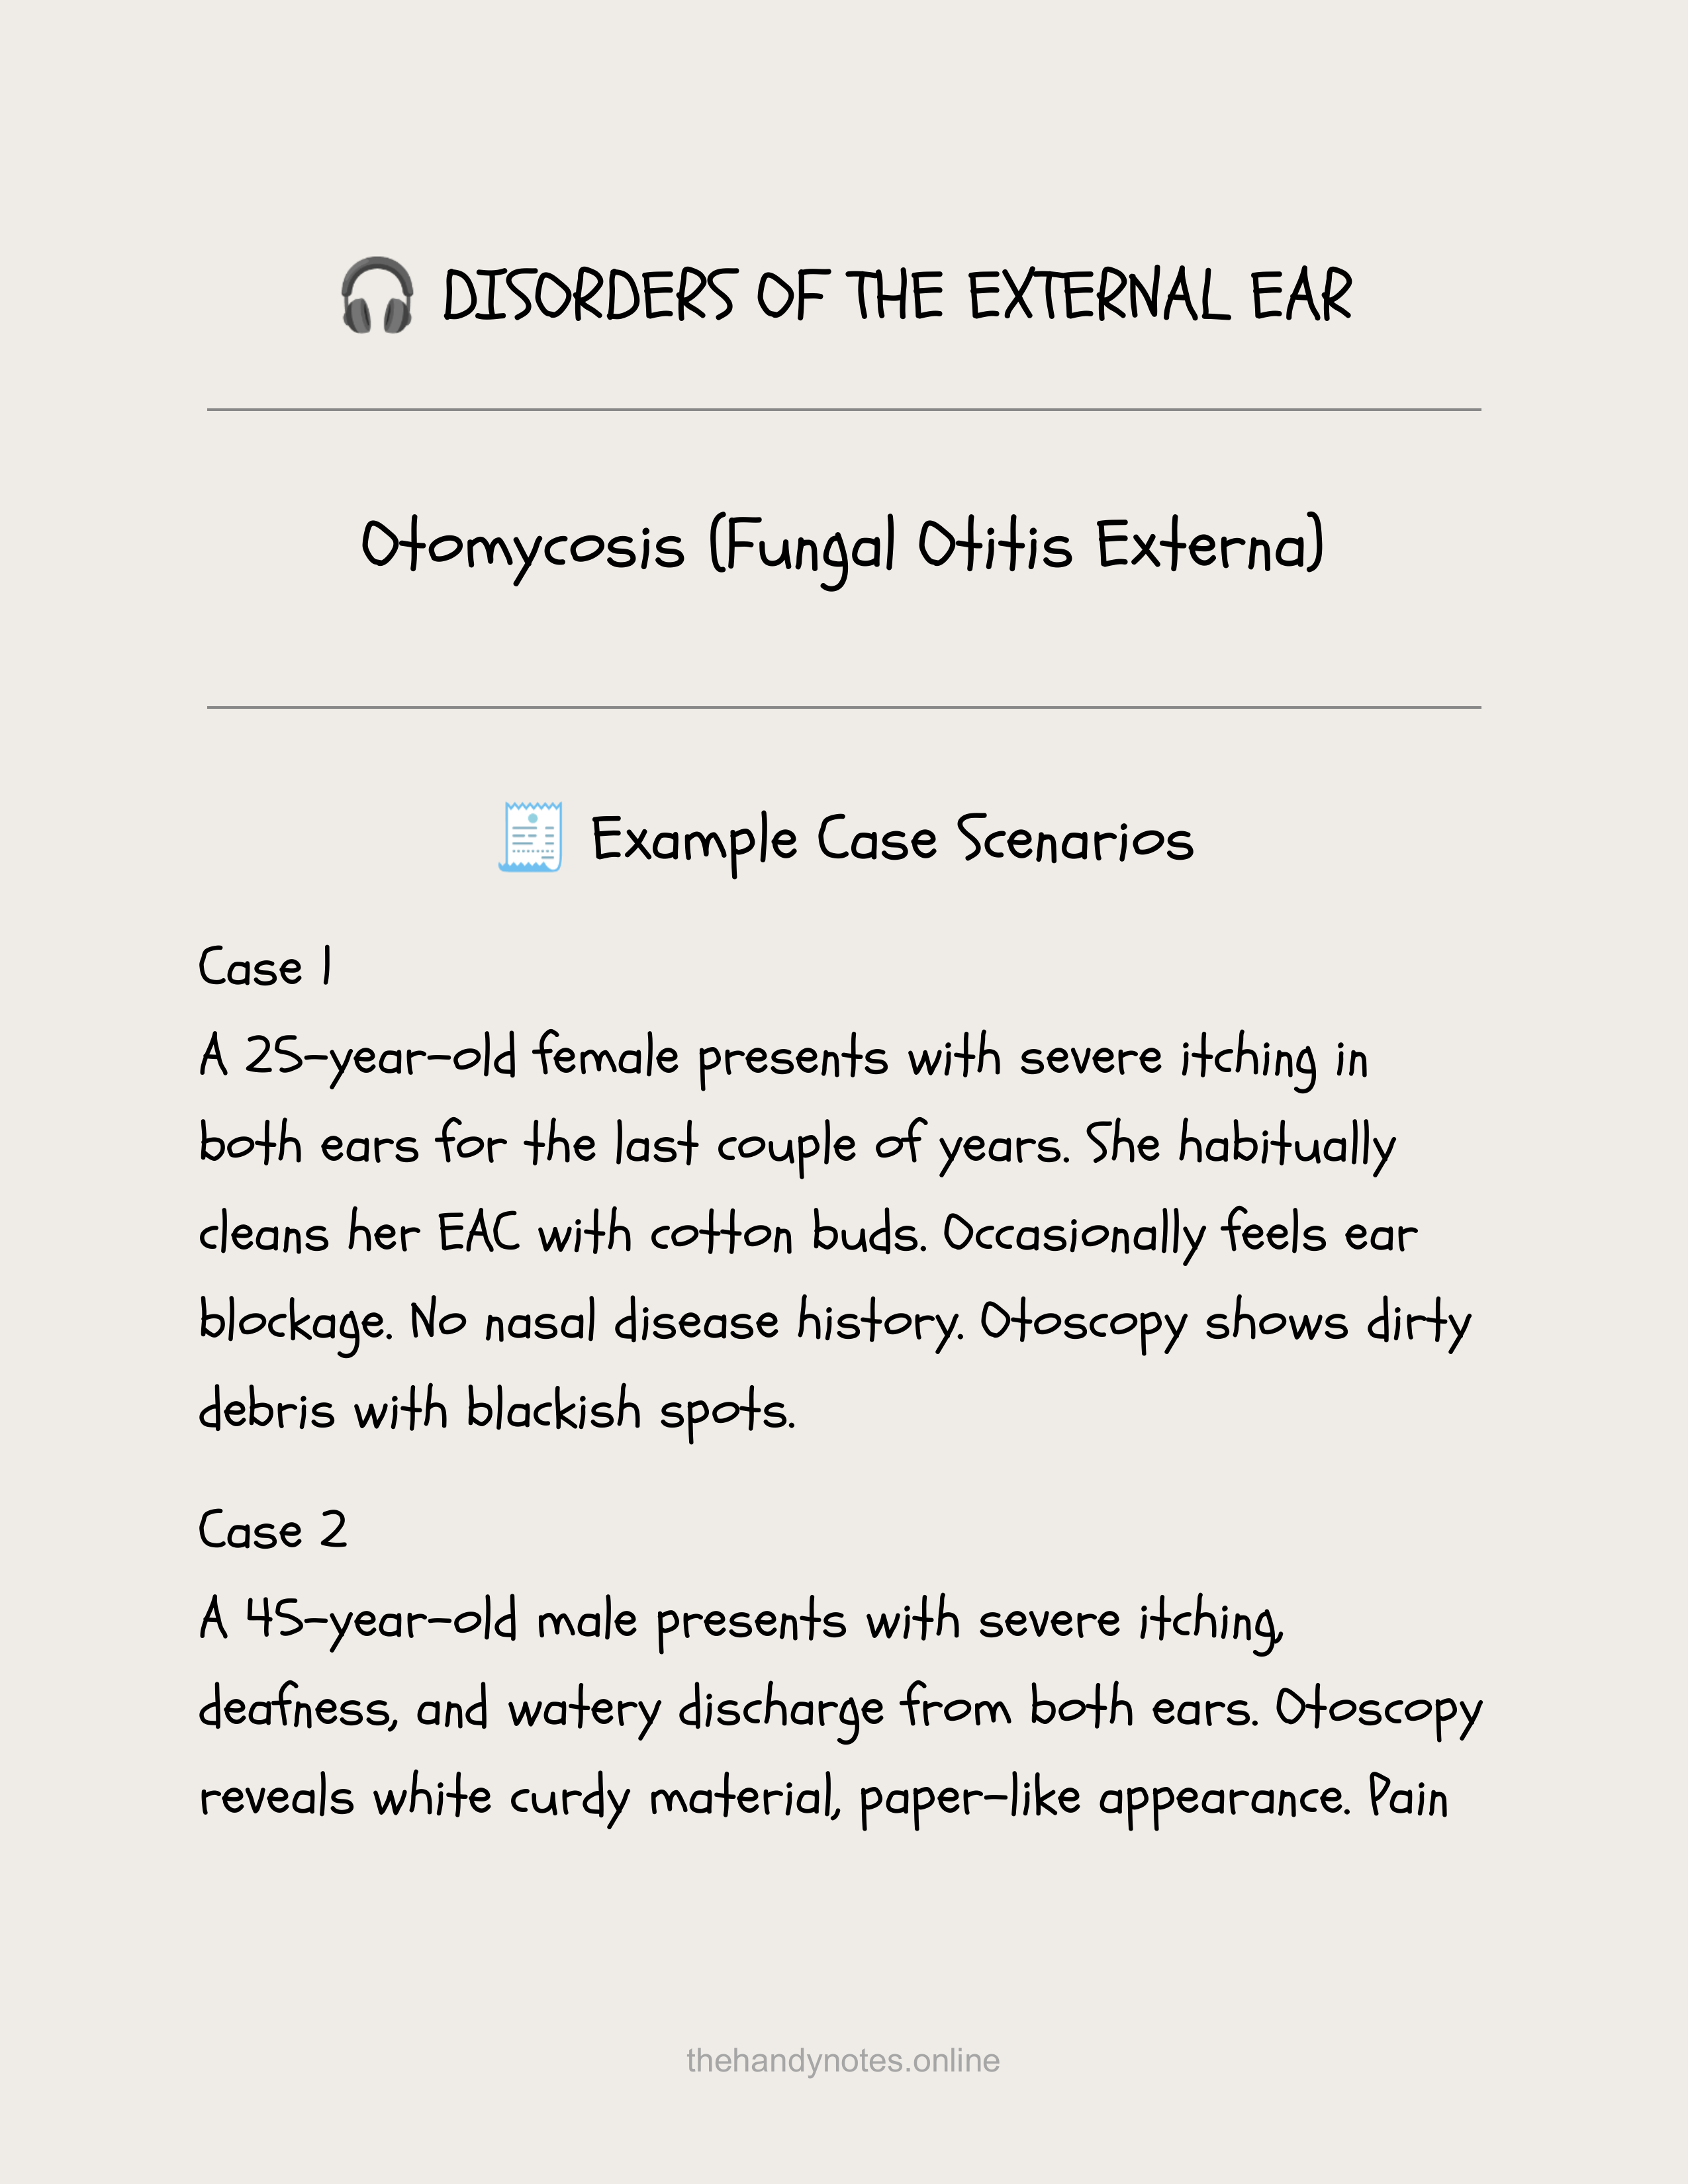 🎧 DISORDERS OF THE EXTERNAL EAR
Otomycosis (Fungal Otitis Externa)
🧾 Example Case Scenarios
Case 1
A 25-year-old female presents with severe itching in
both ears for the last couple of years. She habitually
cleans her EAC with cotton buds. Occasionally feels ear
blockage. No nasal disease history. Otoscopy shows dirty
debris with blackish spots.
Case 2
A 45-year-old male presents with severe itching,
deafness, and watery discharge from both ears. Otoscopy
reveals white curdy material, paper-like appearance. Pain
thehandynotes.online